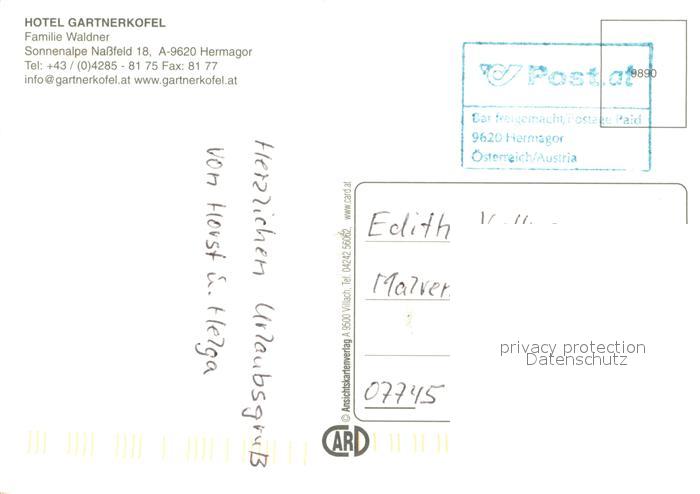 HOTEL GARTNERKOFEL
Familie Waldner
Sonnenalpe Naßfeld 18, A-9620 Hermagor
Tel: +43 / (0)4285 - 81 75 Fax: 81 77
info@gartnerkofel.at www.gartnerkofel.at
Post.at
9890
Bar freigemacht/Postage Paid
9620 Hermagor
Österreich/Austria
Herzlichen Urlaubsgruß
von Horst u. Helga
© Ansichtskartenverlag A 9500 Villach, Tel. 04242 56062, www.card.at
Edith
privacy protection
Datenschutz
07745
CARD